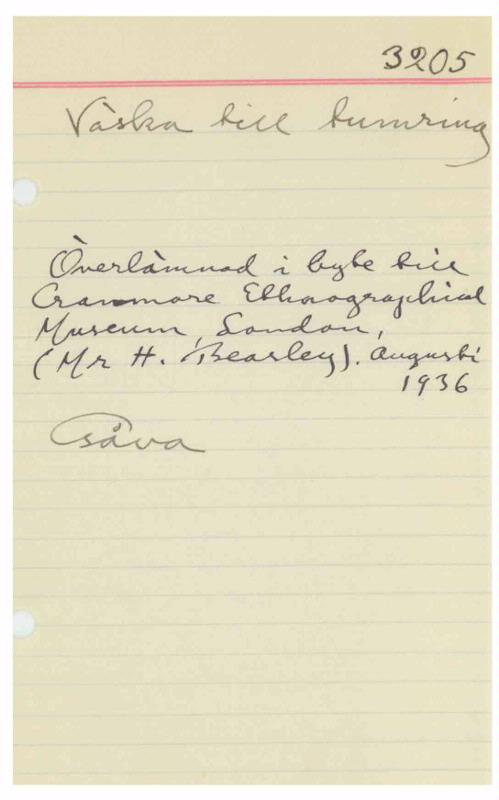 3205
Väska till tumring
Överlämnad i byte till
Cranmore Ethnographical
Museum, London,
(Mr H. Beasley). Augusti
1936
Csåva